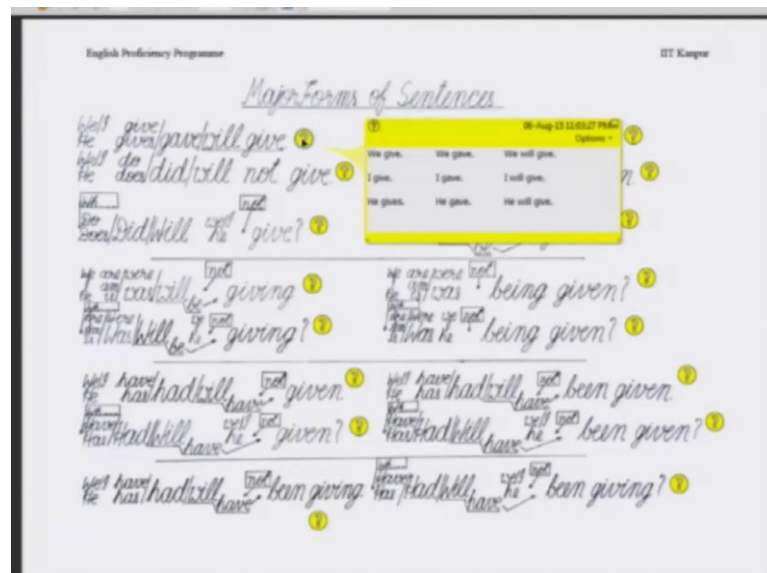 English Proficiency Programme IIT Kanpur
Major Forms of Sentences
We/I give/
He gives/gave/will give
06-Aug-13 11:03:27 PM
Options
We give. We gave. We will give.
I give. I gave. I will give.
He gives. He gave. He will give.
We/I do
He does/did/will not give
n.
Wh
Do
Does/Did/Will we/I he not give?
be
We are/were
I am
He is/was/will be not giving
We are/were
I am
He is/was not being given?
Wh
Are/Were
Am
Is/Was/Will we I he be not giving?
Wh
Are/Were
Am
Is/Was we I he not being given?
We/I have/
He has/had/will have not given
We/I have/
He has/had/will have not been given
Wh
Have/
Has/Had/Will we/I he have not given?
Wh
Have/
Has/Had/Will we/I he have not been given?
We/I have/
He has/had/will have not been giving
Wh
Have/
Has/Had/Will we/I he have not been giving?